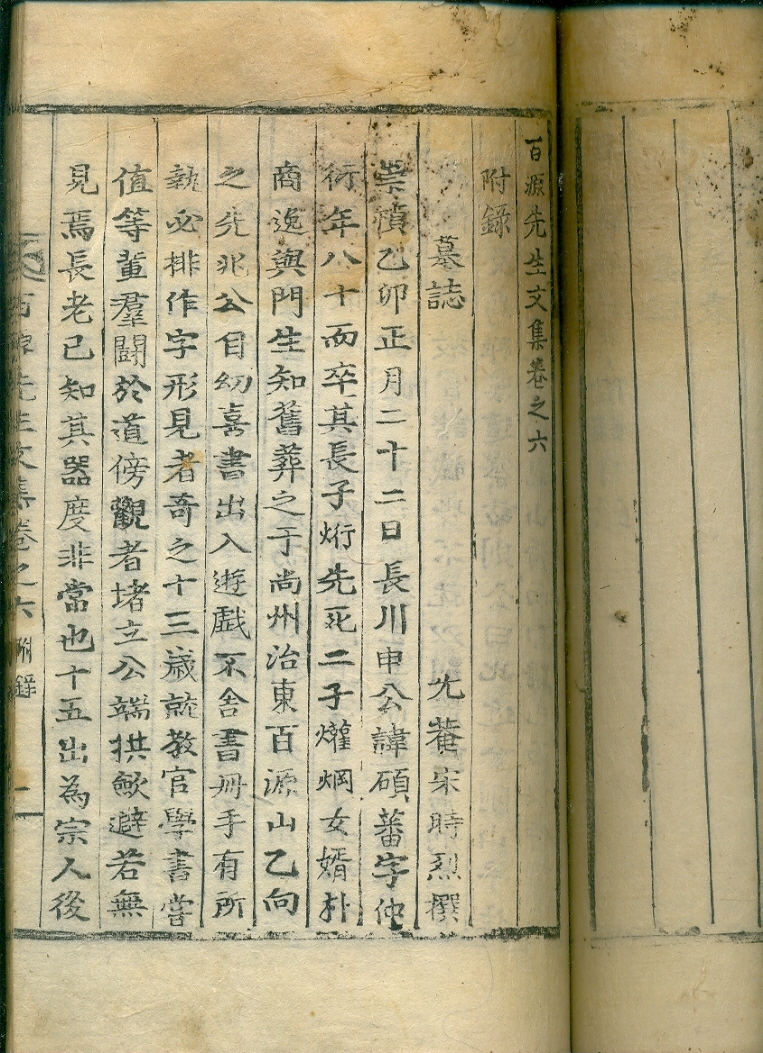 百源先生文集卷之六
附錄
墓誌
尤菴宋時烈撰
崇禎乙卯正月二十二日長川申公諱碩蕃字仲
衍年八十而卒其長子烆先死二子爟焵女婿朴
商逸與門生知舊葬之于尚州治東百源山乙向
之先兆公自幼喜書出入遊戱不舍書冊手有所
執必排作字形見者奇之十三歲就教官學書嘗
值等輩羣鬪於道傍觀者堵立公端拱歛避若無
見焉長老已知其器度非常也十五出為宗人後
百源先生文集卷之六 附錄 一